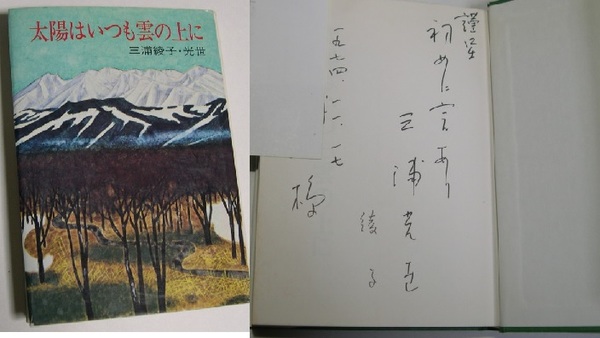 太陽はいつも雲の上に
三浦綾子・光世
謹呈
初めに言あり
三浦光世
綾子
一九七四、一一、一七
様